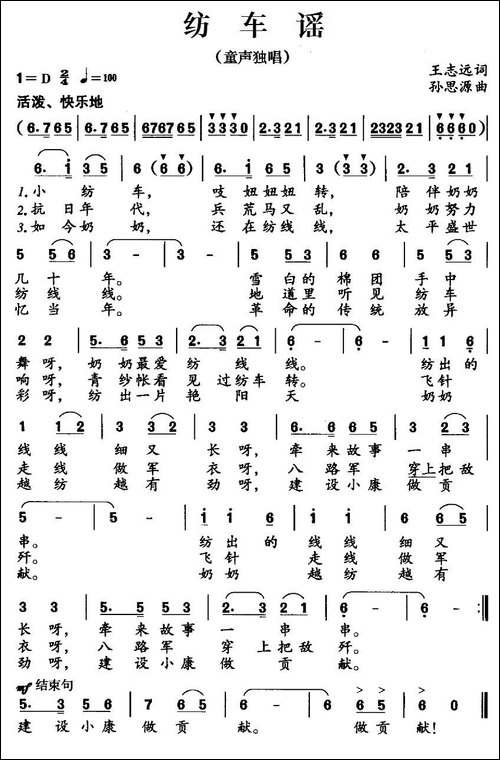 纺车谣
（童声独唱）
1=D 2/4 ♩=100
王志远词
孙思源曲
活泼、快乐地
(6.765 | 6.765 | 676765 | 3330 | 2.321 | 2.321 | 232321 | 6660) |
6. i 3 5 | 6 (6 6) | 6. i 5 6 | 3 (3 3) | 2. 3 2 1 |
1.小纺车，吱妞妞妞转，陪伴奶奶
2.抗日年代，兵荒马又乱，奶奶努力
3.如今奶奶，还在纺线线，太平盛世
5 5 6 | 3 - | 3 - | 5 6 5 3 | 0 6 6 | i 6 5 6 |
几十年。雪白的棉团手中
纺线线。地道里听见纺车
忆当年。革命的传统放异
2 2 | 5. 6 5 3 | 2. 3 2 1 | 6 - | 6 - | i i 6 |
舞呀，奶奶最爱纺线线。纺出的
响呀，青纱帐看见过纺车转。飞针
彩呀，纺出一片艳阳天 奶奶
1 1 2 | 3 3 2 | 3 3 | 6. 6 6 5 | i 6 5 3 |
线线细又长呀，牵来故事一串
走线做军衣呀，八路军穿上把敌
越纺越有劲呀，建设小康做贡
5 - | 5 - | i i 6 | i i | 6 6 5 |
串。纺出的线线细又
歼。飞针走线做军
献。奶奶越纺越有
3 3 | 5. 5 5 3 | 2. 3 2 1 | 6 - | 6 - :||
长呀，牵来故事一串串。
衣呀，八路军穿上把敌歼。
劲呀，建设小康做贡献。
mf 结束句
5. 3 5 6 | 7 6 5 | 6 - | 6 6 5 | 6 0 ||
建设小康做贡献。做贡献！